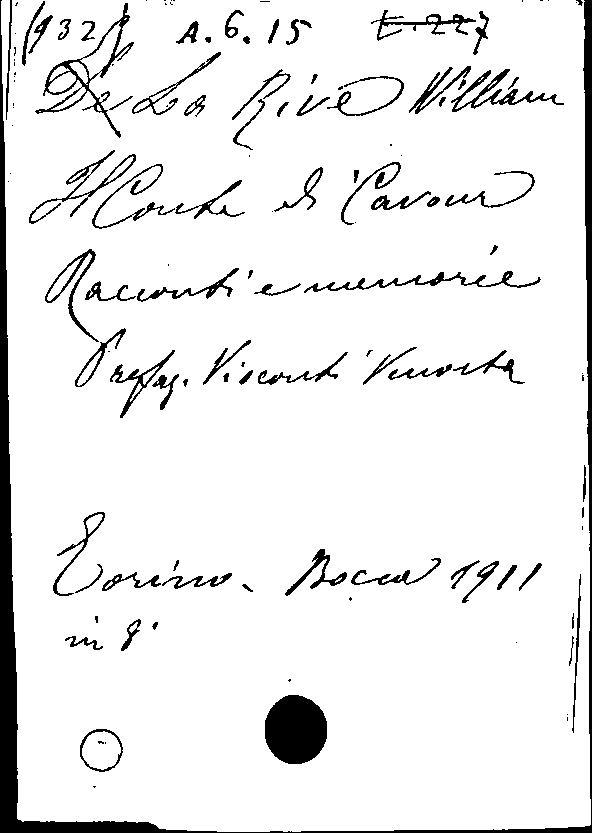 (932) A.6.15 E.227
De La Rive William
Il Conte di Cavour
Racconti e memorie
Prefaz. Visconti Venosta
Torino - Bocca 1911
in 8°